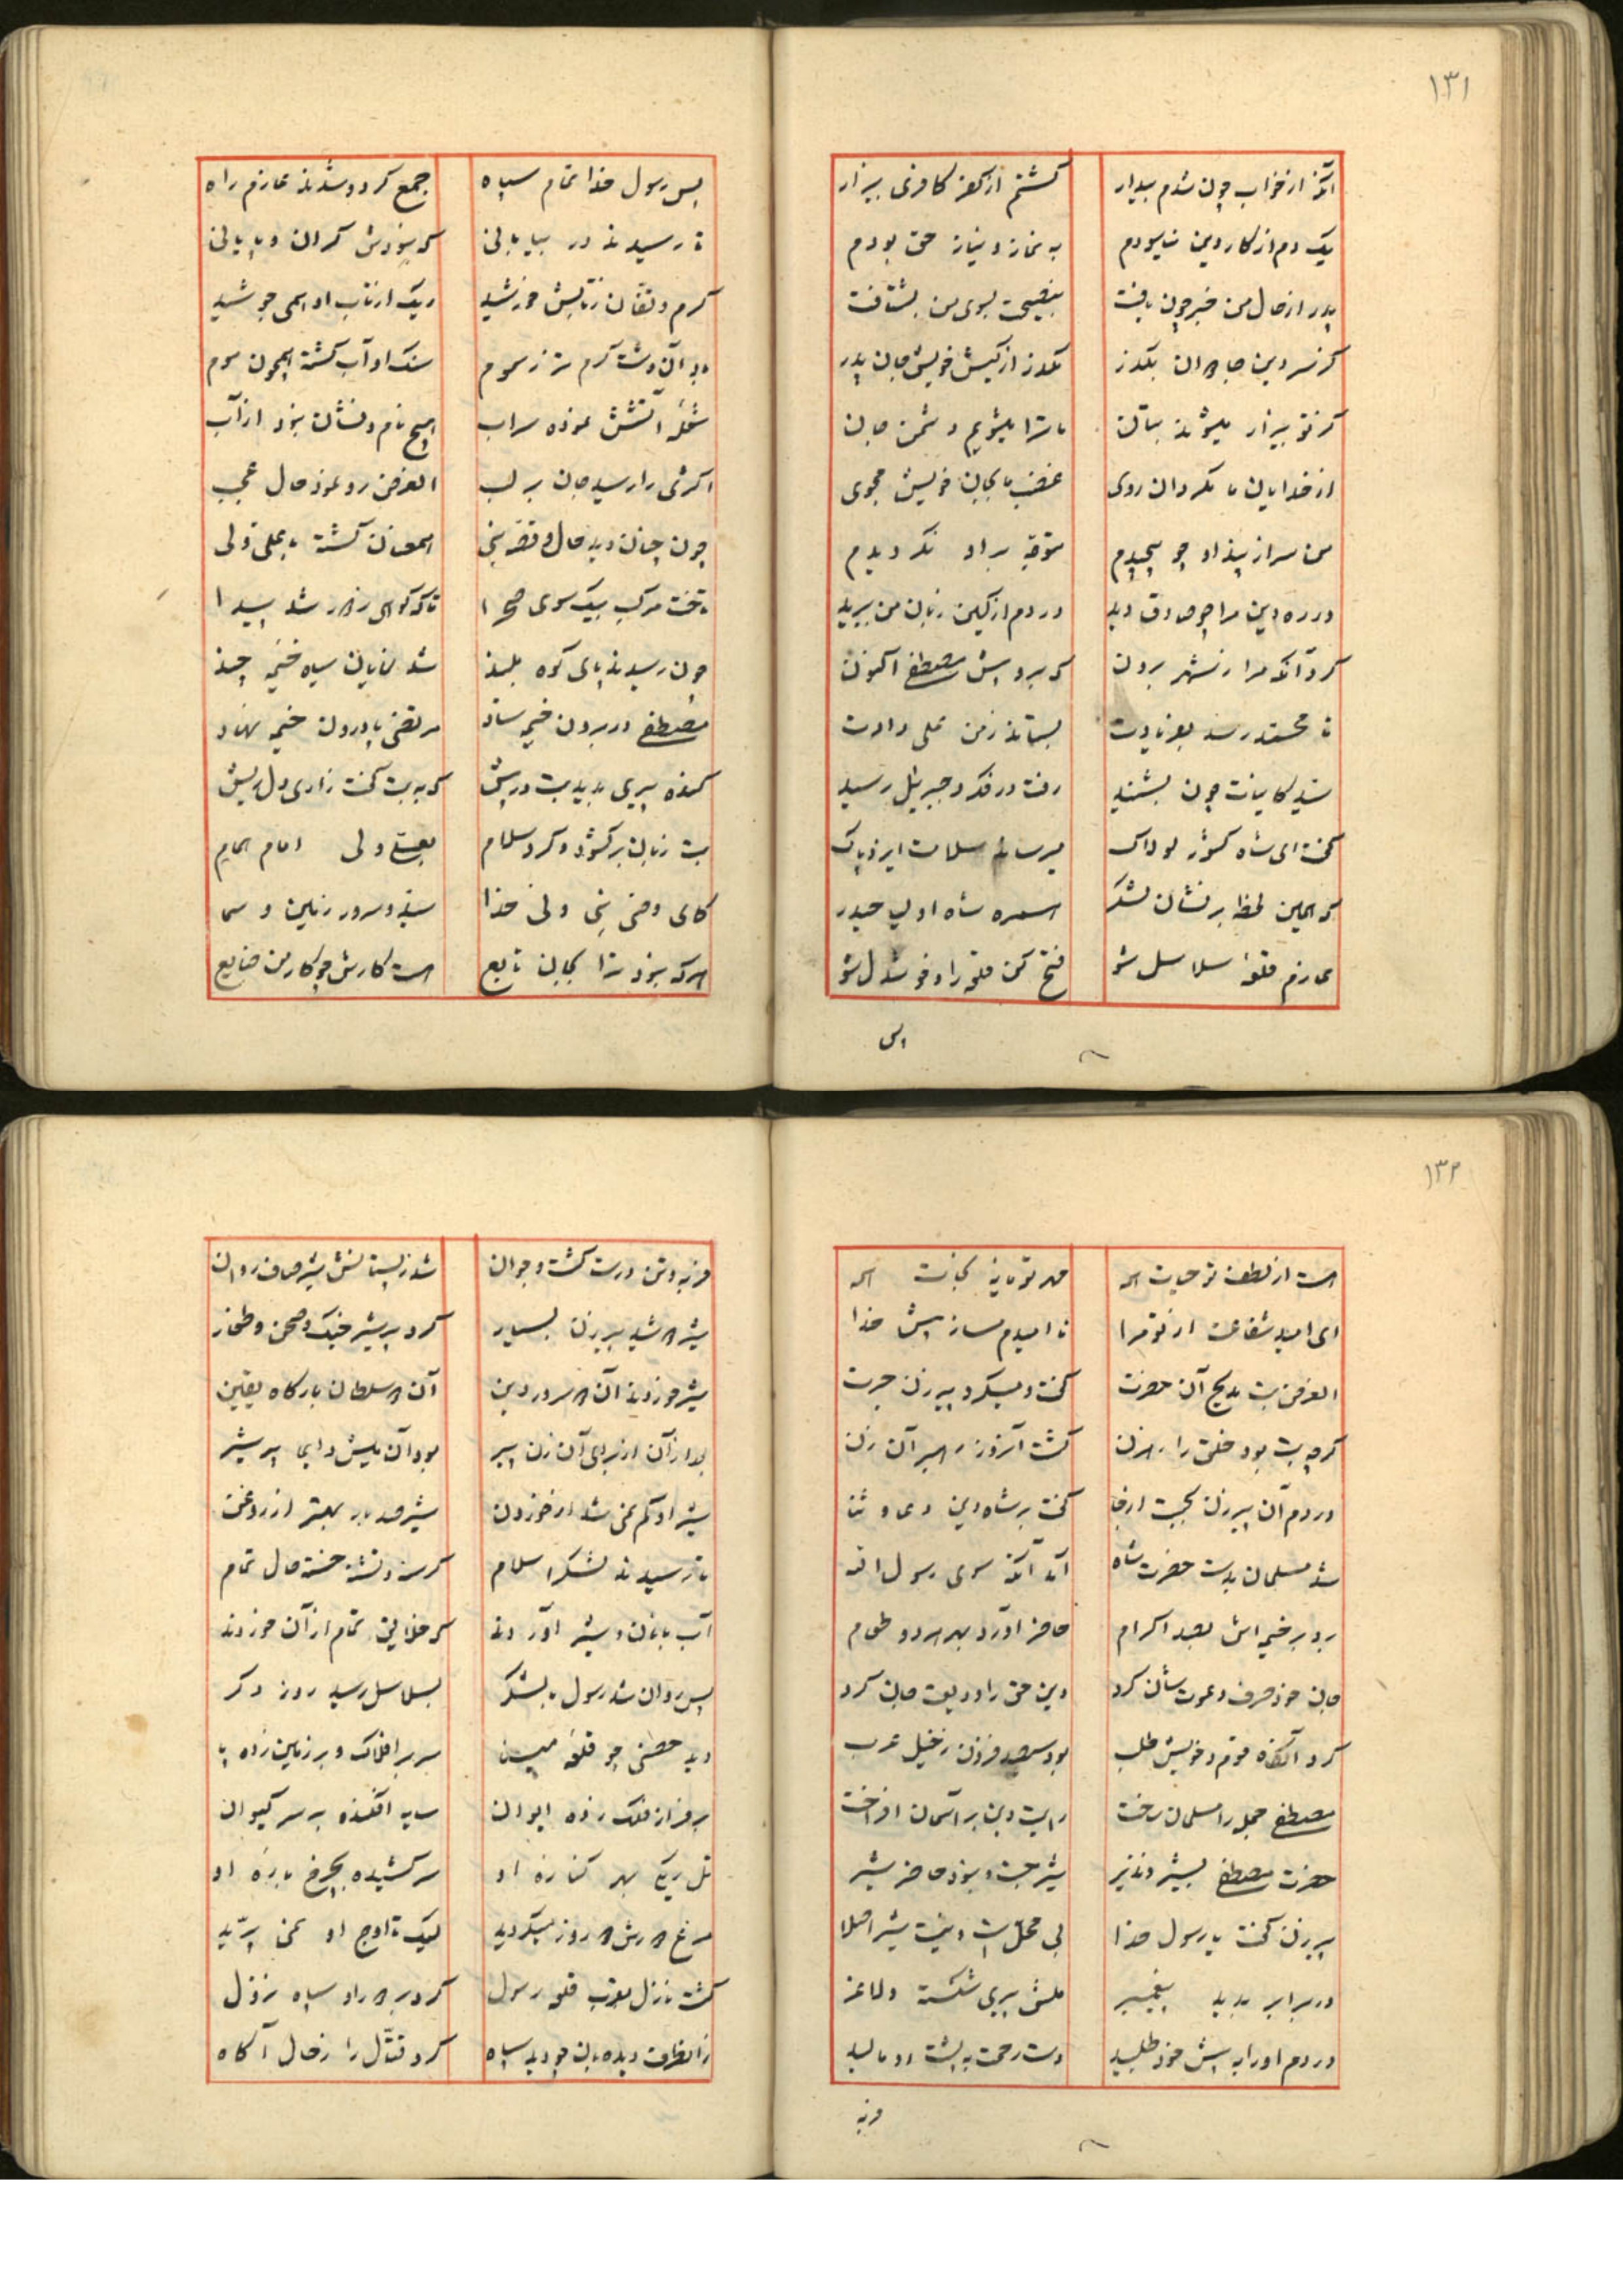 ١٣١
آنکه از خواب چون شدم بیدار کشتم از کفر کافری بیزار
یک دم از کار دین نیاسودم به نماز و نیاز حق بودم
پدر از حال من خبر چون یافت بنصیحت بسوی من بشتافت
کر نو بیزار میشوند بتان ما ترا میشویم دشمن جان
از خدایان ما مکردان روی غضب ما بجان خویش مجوی
من سر از پند او چو پیچیدم
در ره دین مرا چو صادق دید در دم از کین زبان من ببرید
کرد آنکه مرا ز شهر برون که برو پیش مصطفی اکنون
تا محمد رسد بستاند ز من علی دادت
سید کاینات چون بشنید رفت در فکر و جبریل رسید
کفت ای شاه کشور لولاک میرساند سلامت ایزد پاک
که همین لحظه بر نشان لشکر همره شاه اولیا حیدر
عازم قلعهٔ سلاسل شو فتح کن قلعه را و خوشدل شو
پس
پس رسول خدا تمام سپاه جمع کرد و شدند عازم راه
تا رسیدند در بیابانی که نبودش کران و پایانی
کرم و تفتان ز تابش خورشید ریک از تاب او همی جوشید
بد آن دشت کرم تر ز سموم سنک او آب کشته همچون موم
شعلهٔ آتشش نموده سراب هیچ نام و نشان نبود از آب
لشکری را رسید جان بر لب الغرض رو نمود حال عجب
چون چنان دید حال و قصه نبی همعنان کشته با علی ولی
تاخت مرکب بیک سوی صحرا تا که کوهی ز دور شد پیدا
چون رسیدند پای کوه بلند شد نمایان سیاه خیمه چند
مصطفی در برون خیمه ستاد مرتضی پا درون خیمه نهاد
کنده پیری بدید بت در پیش که به بت کفت زاری دل ریش
بت زبان بر کشود و کرد سلام بعلی ولی امام همام
کای وصی نبی ولی خدا سید و سرور زمین و سما
هر که نبود ترا بجان تابع هست کارش چو کار من ضایع
١٣٢
هست از لطف تو حیات همه مهر تو مایهٔ نجات همه
ای امید شفاعت از تو مرا نا امیدم مساز پیش خدا
الغرض بت مدیح آن حضرت کفت و میکرد پیرزن حیرت
کرچه بت بود خلق را رهزن کشت آنروز رهبر آن زن
در دم آن پیرزن بجست از جا کفت بر شاه دین دعا و ثنا
شد مسلمان بدست حضرت شاه آمد آنکه سوی رسول اله
برد بر خیمه اش بصد اکرام حاضر آورد بهر هر دو طعام
جان خود صرف دعوت شان کرد دین حق را ودیعت جان کرد
کرد آنکاه قوم و خویش طلب بود سیصد فزون ز خیل عرب
مصطفی جمله را مسلمان ساخت رایت دین بر آسمان افراخت
حضرت مصطفی بشیر و نذیر شیر جست و نبود حاضر شیر
پیرزن کفت یا رسول خدا بی محل است و نیست شیر اصلا
در برابر بدید پیغمبر میش پیری شکسته و لاغر
در دم او را به پیش خود طلبید دست رحمت به پشت او مالید
فربه
فربه و تن درست کشت و جوان شد ز پستانش شیر صاف روان
شیر دوشید پیرزن بسیار کرد پر شیر خیک و صحن و طغار
شیر خوردند آن دو سرور دین آن دو سلطان بارکاه یقین
بعد از آن از برای آن زن پیر بود آن میش دایما پر شیر
شیر او کم نمی شد از خوردن شیر صد بار بهتر از روغن
تا رسیدند لشکر اسلام کرسنه و تشنه خسته حال تمام
آب با نان و شیر آوردند که خلایق تمام از آن خوردند
پس روان شد رسول با لشکر بسلاسل رسید روز دکر
دید حصنی چو قلعه مینا سر بر افلاک و بر زمین زده پا
بر فراز فلک زده ایوان سایه افکنده بر سر کیوان
تل ریکی بهر کناره او سر کشیده بچرخ باره او
مرغ دورش دو روز میکردید لیک تا اوج او نمی پرید
کشت نازل بقرب قلعه رسول کرد بر دور او سپاه نزول
زان طرف دیده بان چو دید سپاه کرد قتال را ز حال آکاه